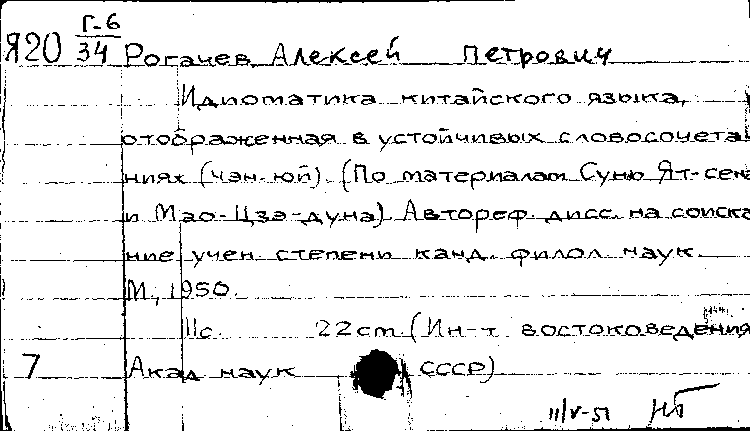 Я20 Г-6/34 Рогачев, Алексей Петрович
Идиоматика китайского языка,
отображенная в устойчивых словосочета
ниях (чэн-юй). (По материалам Сунь Ят-сена
и Мао-Цзэ-дуна) Автореф. дисс. на соиска
ние учен. степени канд. филол. наук.
М., 1950.
11с. 22cm (Ин-т востоковедения
7 Акад наук СССР)
11/V-51